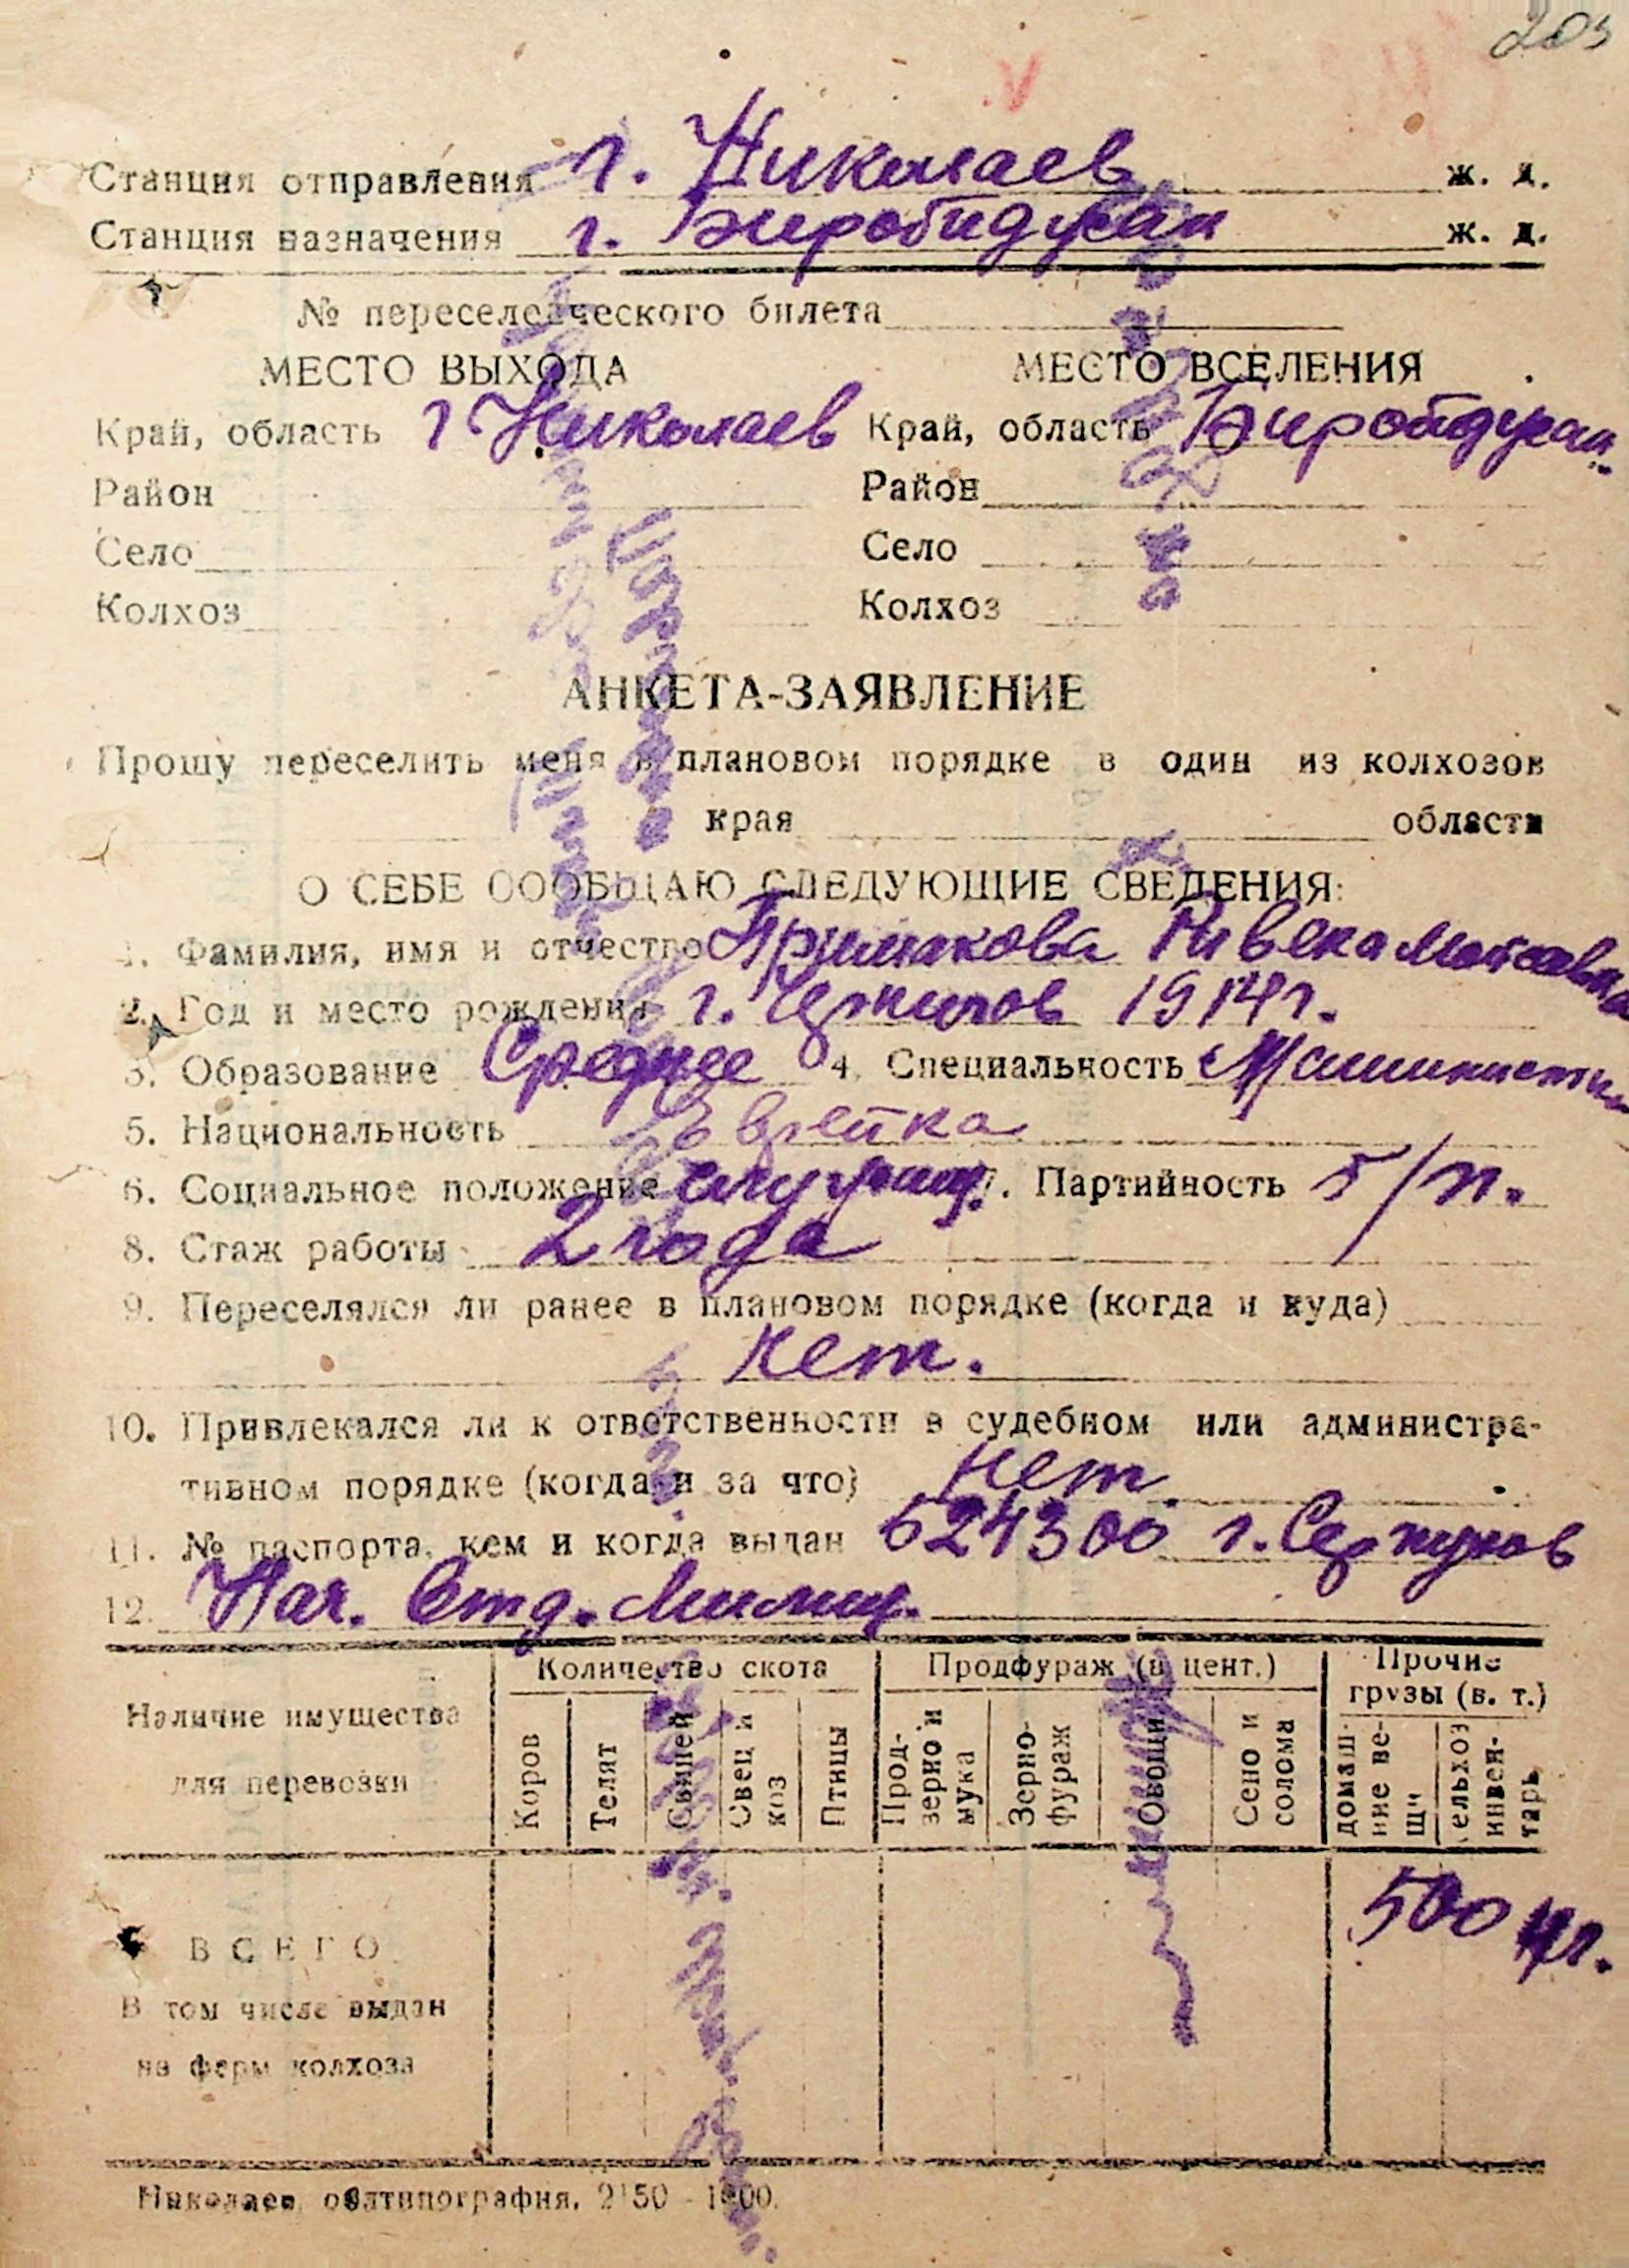 203
Станция отправления г. Николаев ж. д.
Станция назначения г. Биробиджан ж. д.
№ переселенческого билета
МЕСТО ВЫХОДА МЕСТО ВСЕЛЕНИЯ
Край, область г Николаев Край, область Биробиджан
Район Район
Село Село
Колхоз Колхоз
АНКЕТА-ЗАЯВЛЕНИЕ
Прошу переселить меня в плановом порядке в один из колхозов
края области
О СЕБЕ СООБЩАЮ СЛЕДУЮЩИЕ СВЕДЕНИЯ:
1. Фамилия, имя и отчество Примакова Ривека Моисеевна
2. Год и место рождения г. Чернигов 1914 г.
3. Образование Среднее 4. Специальность Машинистка
5. Национальность Еврейка
6. Социальное положение служащ. 7. Партийность б/п.
8. Стаж работы 2 года
9. Переселялся ли ранее в плановом порядке (когда и куда)
нет.
10. Привлекался ли к ответственности в судебном или администра-
тивном порядке (когда и за что) нет.
11. № паспорта, кем и когда выдан 624300 г. Серпухов
12. Нач. Отд. Милиц.
Наличие имущества для перевозки
Количество скота Продфураж (в цент.) Прочие грузы (в. т.)
Коров Телят Свиней Овец и коз Птицы Прод-зерно и мука Зерно-фураж Овощи Сено и солома домаш-ние ве-щи сельхоз инвен-тарь
ВСЕГО 500 кг.
В том числе выдан
на ферм колхоза
Николаев, облтипография. 2150 - 1000.